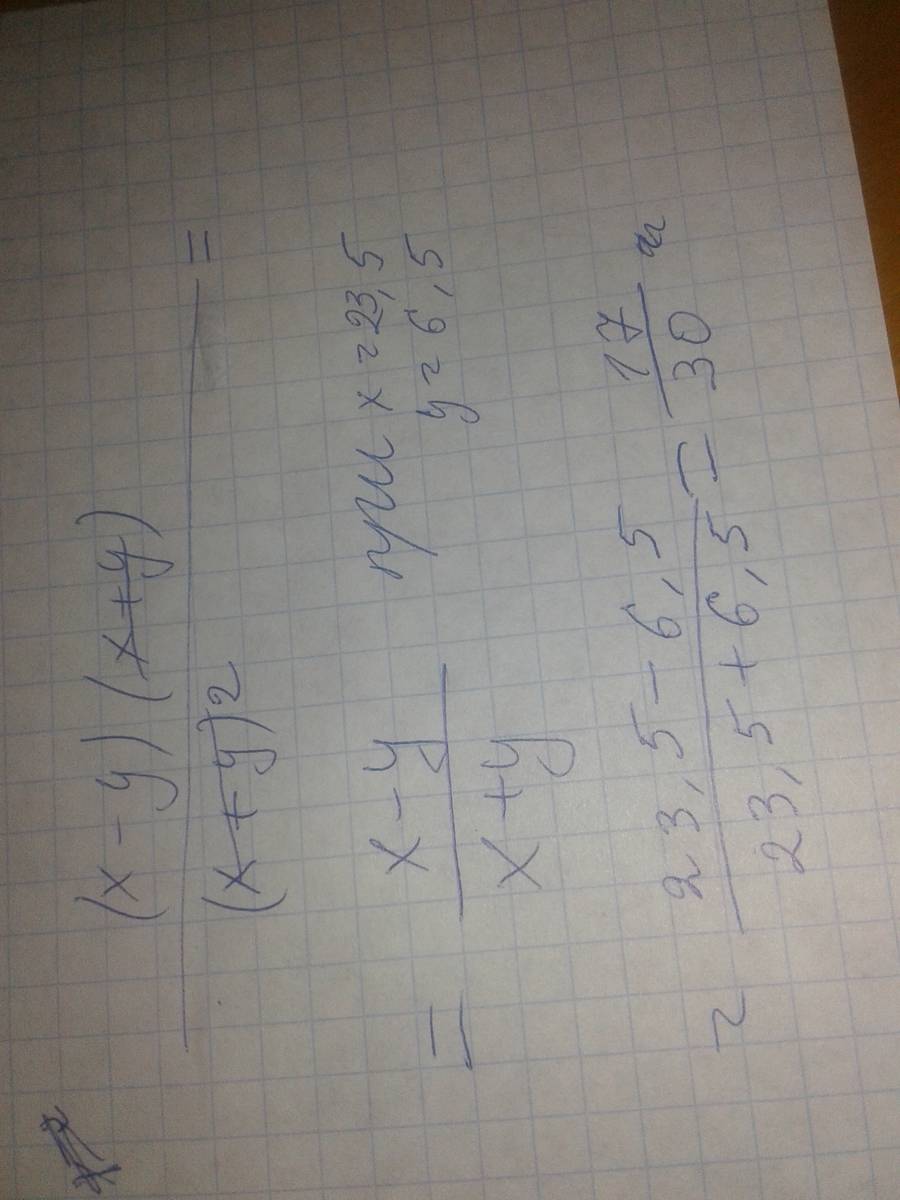 (x-y)(x+y)
=
(x+y)2
= x-y
x+y
при x=23,5
y=6,5
= 23,5-6,5
23,5+6,5
= 17
30